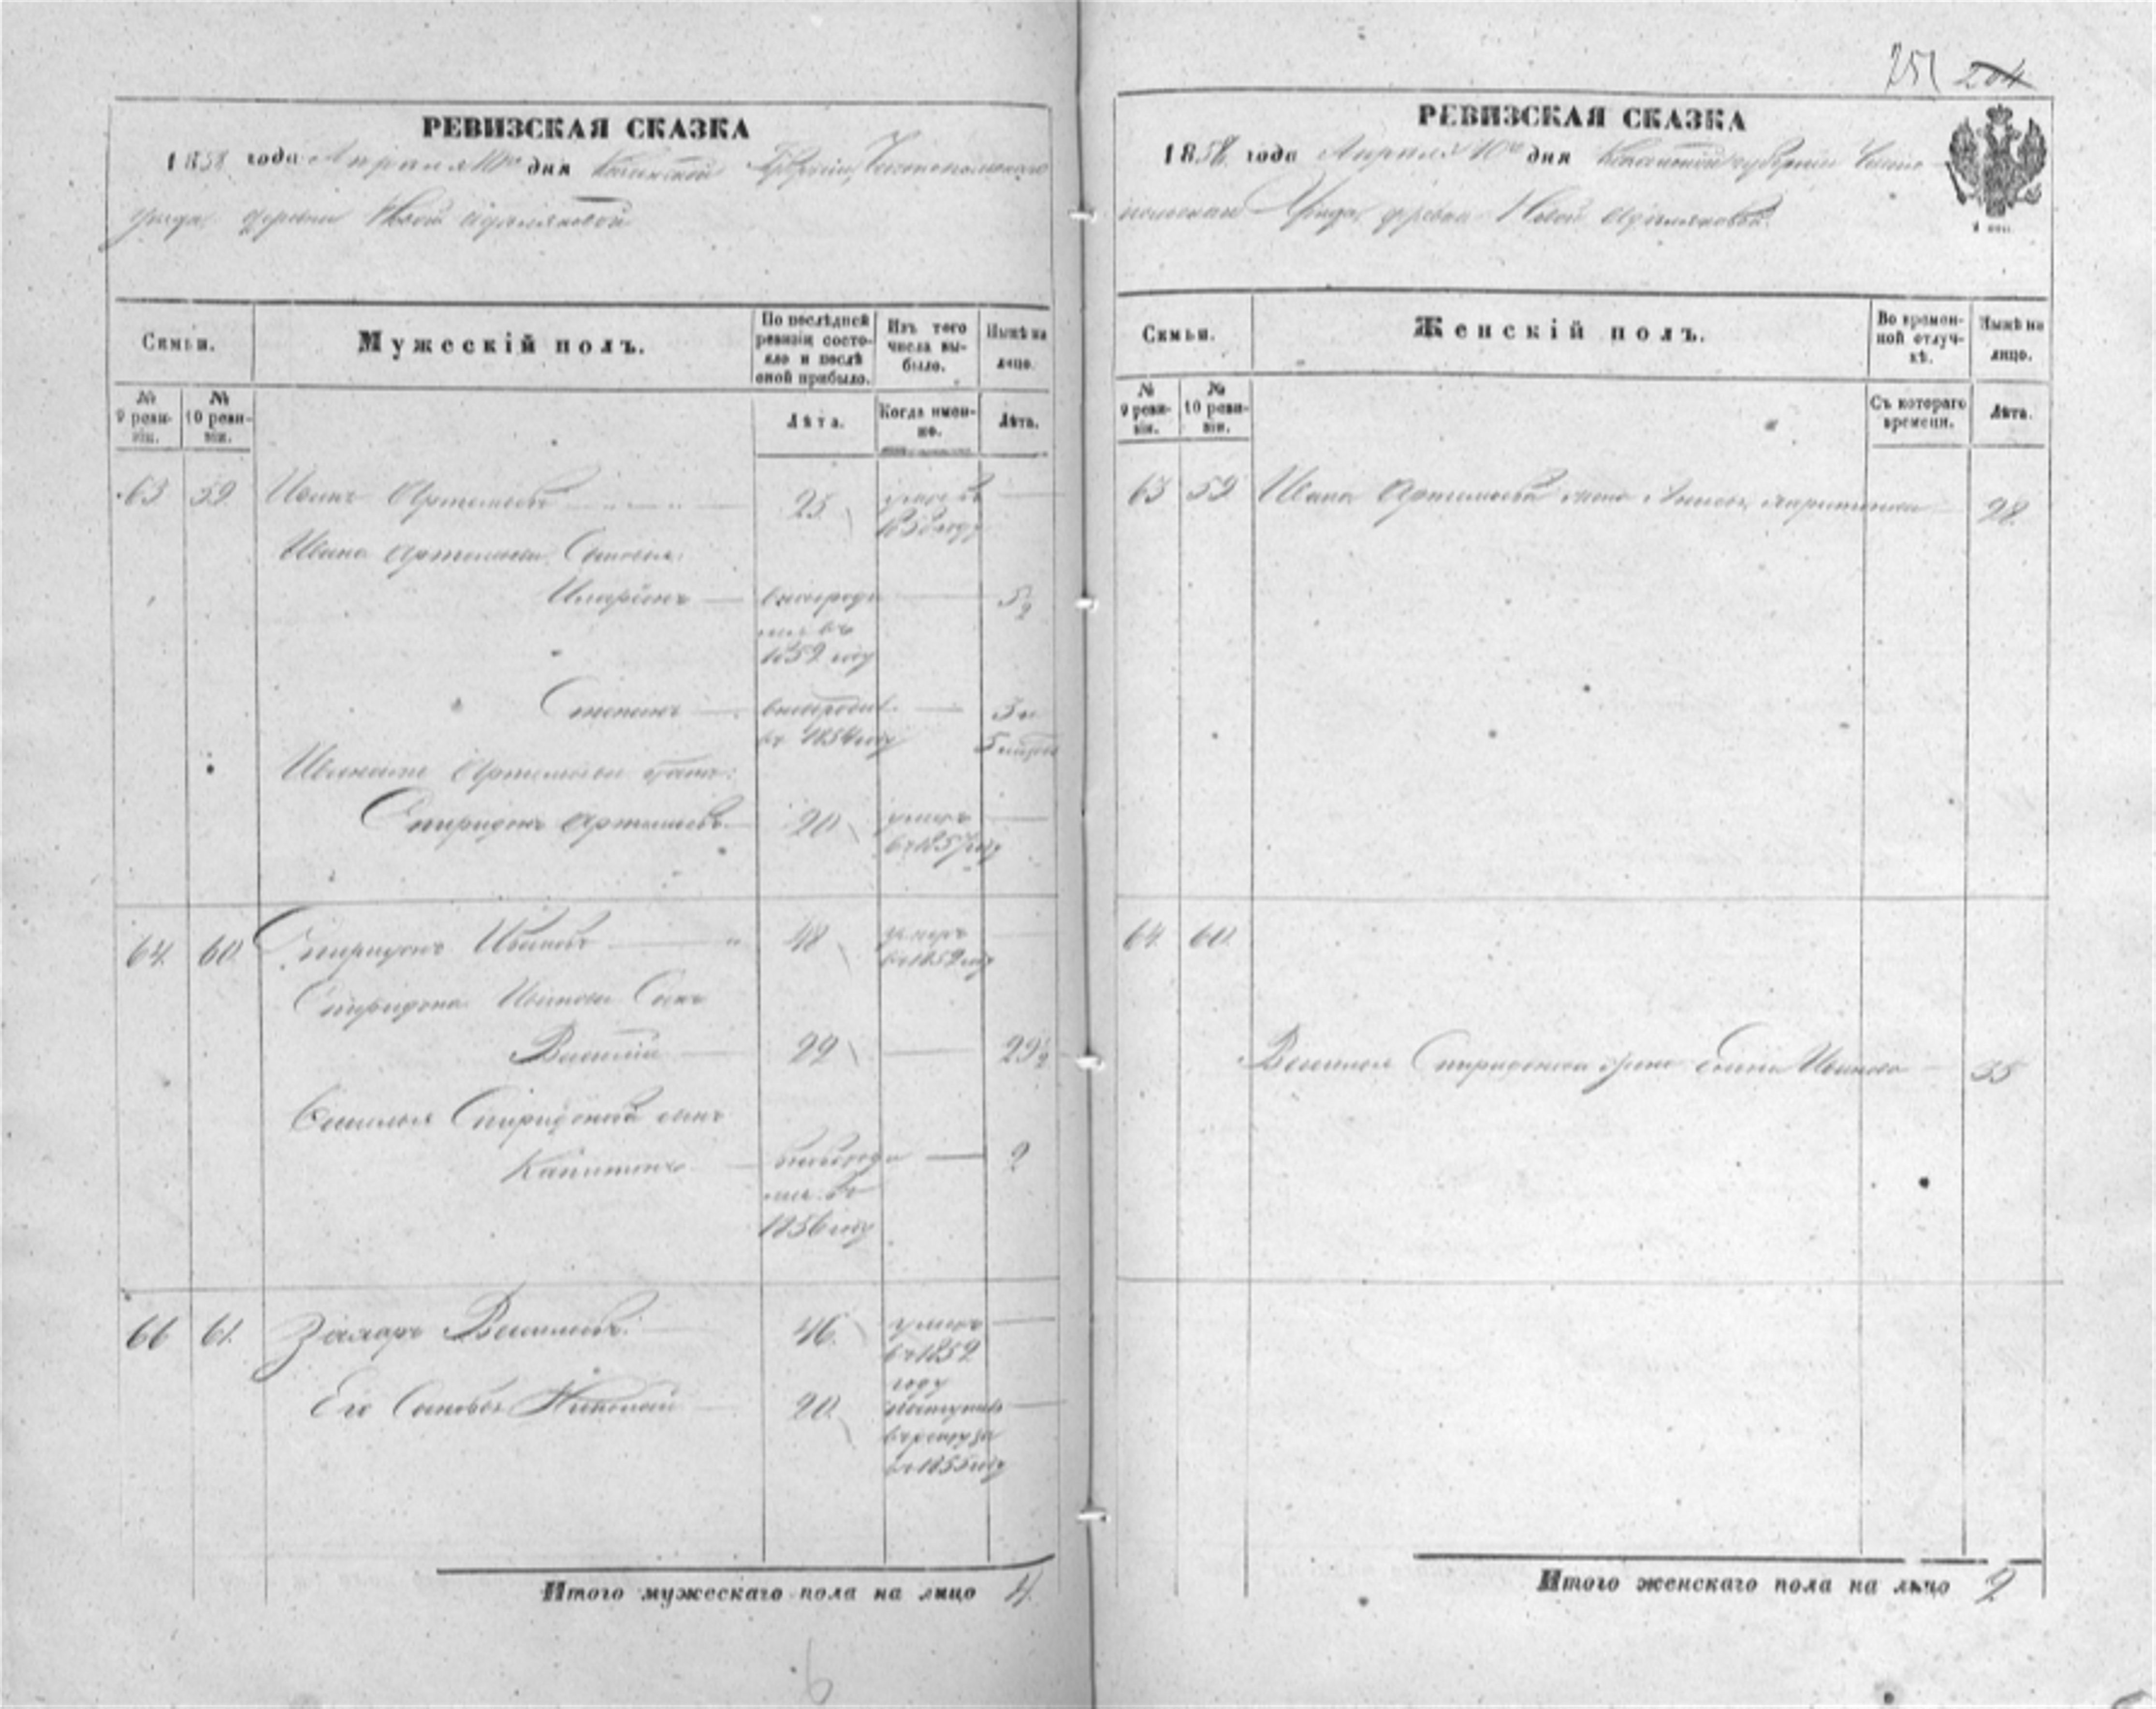 251 204
РЕВИЗСКАЯ СКАЗКА
1858 года Апреля 10го дня Казанской Губерніи, Чистопольскаго
уезда, деревни Новой Адамшиковой
Семьи.
Мужескій полъ.
По послѣдней ревизіи состояло и послѣ оной прибыло.
Изъ того числа выбыло.
Нынѣ на лицо.
№ 9 ревизіи.
№ 10 ревизіи.
Лѣта.
Когда именно.
Лѣта.
63 59 Иванъ Артемьевъ 25 умеръ въ
1858 году
Ивана Артемьева Сыновья:
Иларіонъ вновьроди 5½
лся въ
1852 году
Степанъ вновьродил. 3 и
въ 1854 году 5 
Ивана Артемьева братъ:
Спиридонъ Артемьевъ 20 умеръ
въ 1857 году
64 60 Спиридонъ Ивановъ 48 умеръ
въ 1852 году
Спиридона Иванова Сынъ
Василій 22 29½
Василья Спиридонова сынъ
Капитонъ вновьроди 2
лся въ
1856 году
66 61 Захаръ Васильевъ 46 умеръ
въ 1852
году
Его Сыновья Николай 20 поступилъ
въ рекруты
въ 1855 году
Итого мужескаго пола на лицо 4
РЕВИЗСКАЯ СКАЗКА
1858 года Апреля 10го дня Казанской губерніи Чисто
польскаго Уезда, деревни Новой
Семьи.
Женскій полъ.
Во временной отлучкѣ.
Нынѣ на лицо.
№ 9 ревизіи.
№ 10 ревизіи.
Съ котораго времени.
Лѣта.
63 59 Ивана Артемьева жена 28
64 60
Василья Спиридонова жена Иванова 35
Итого женскаго пола на лицо 2